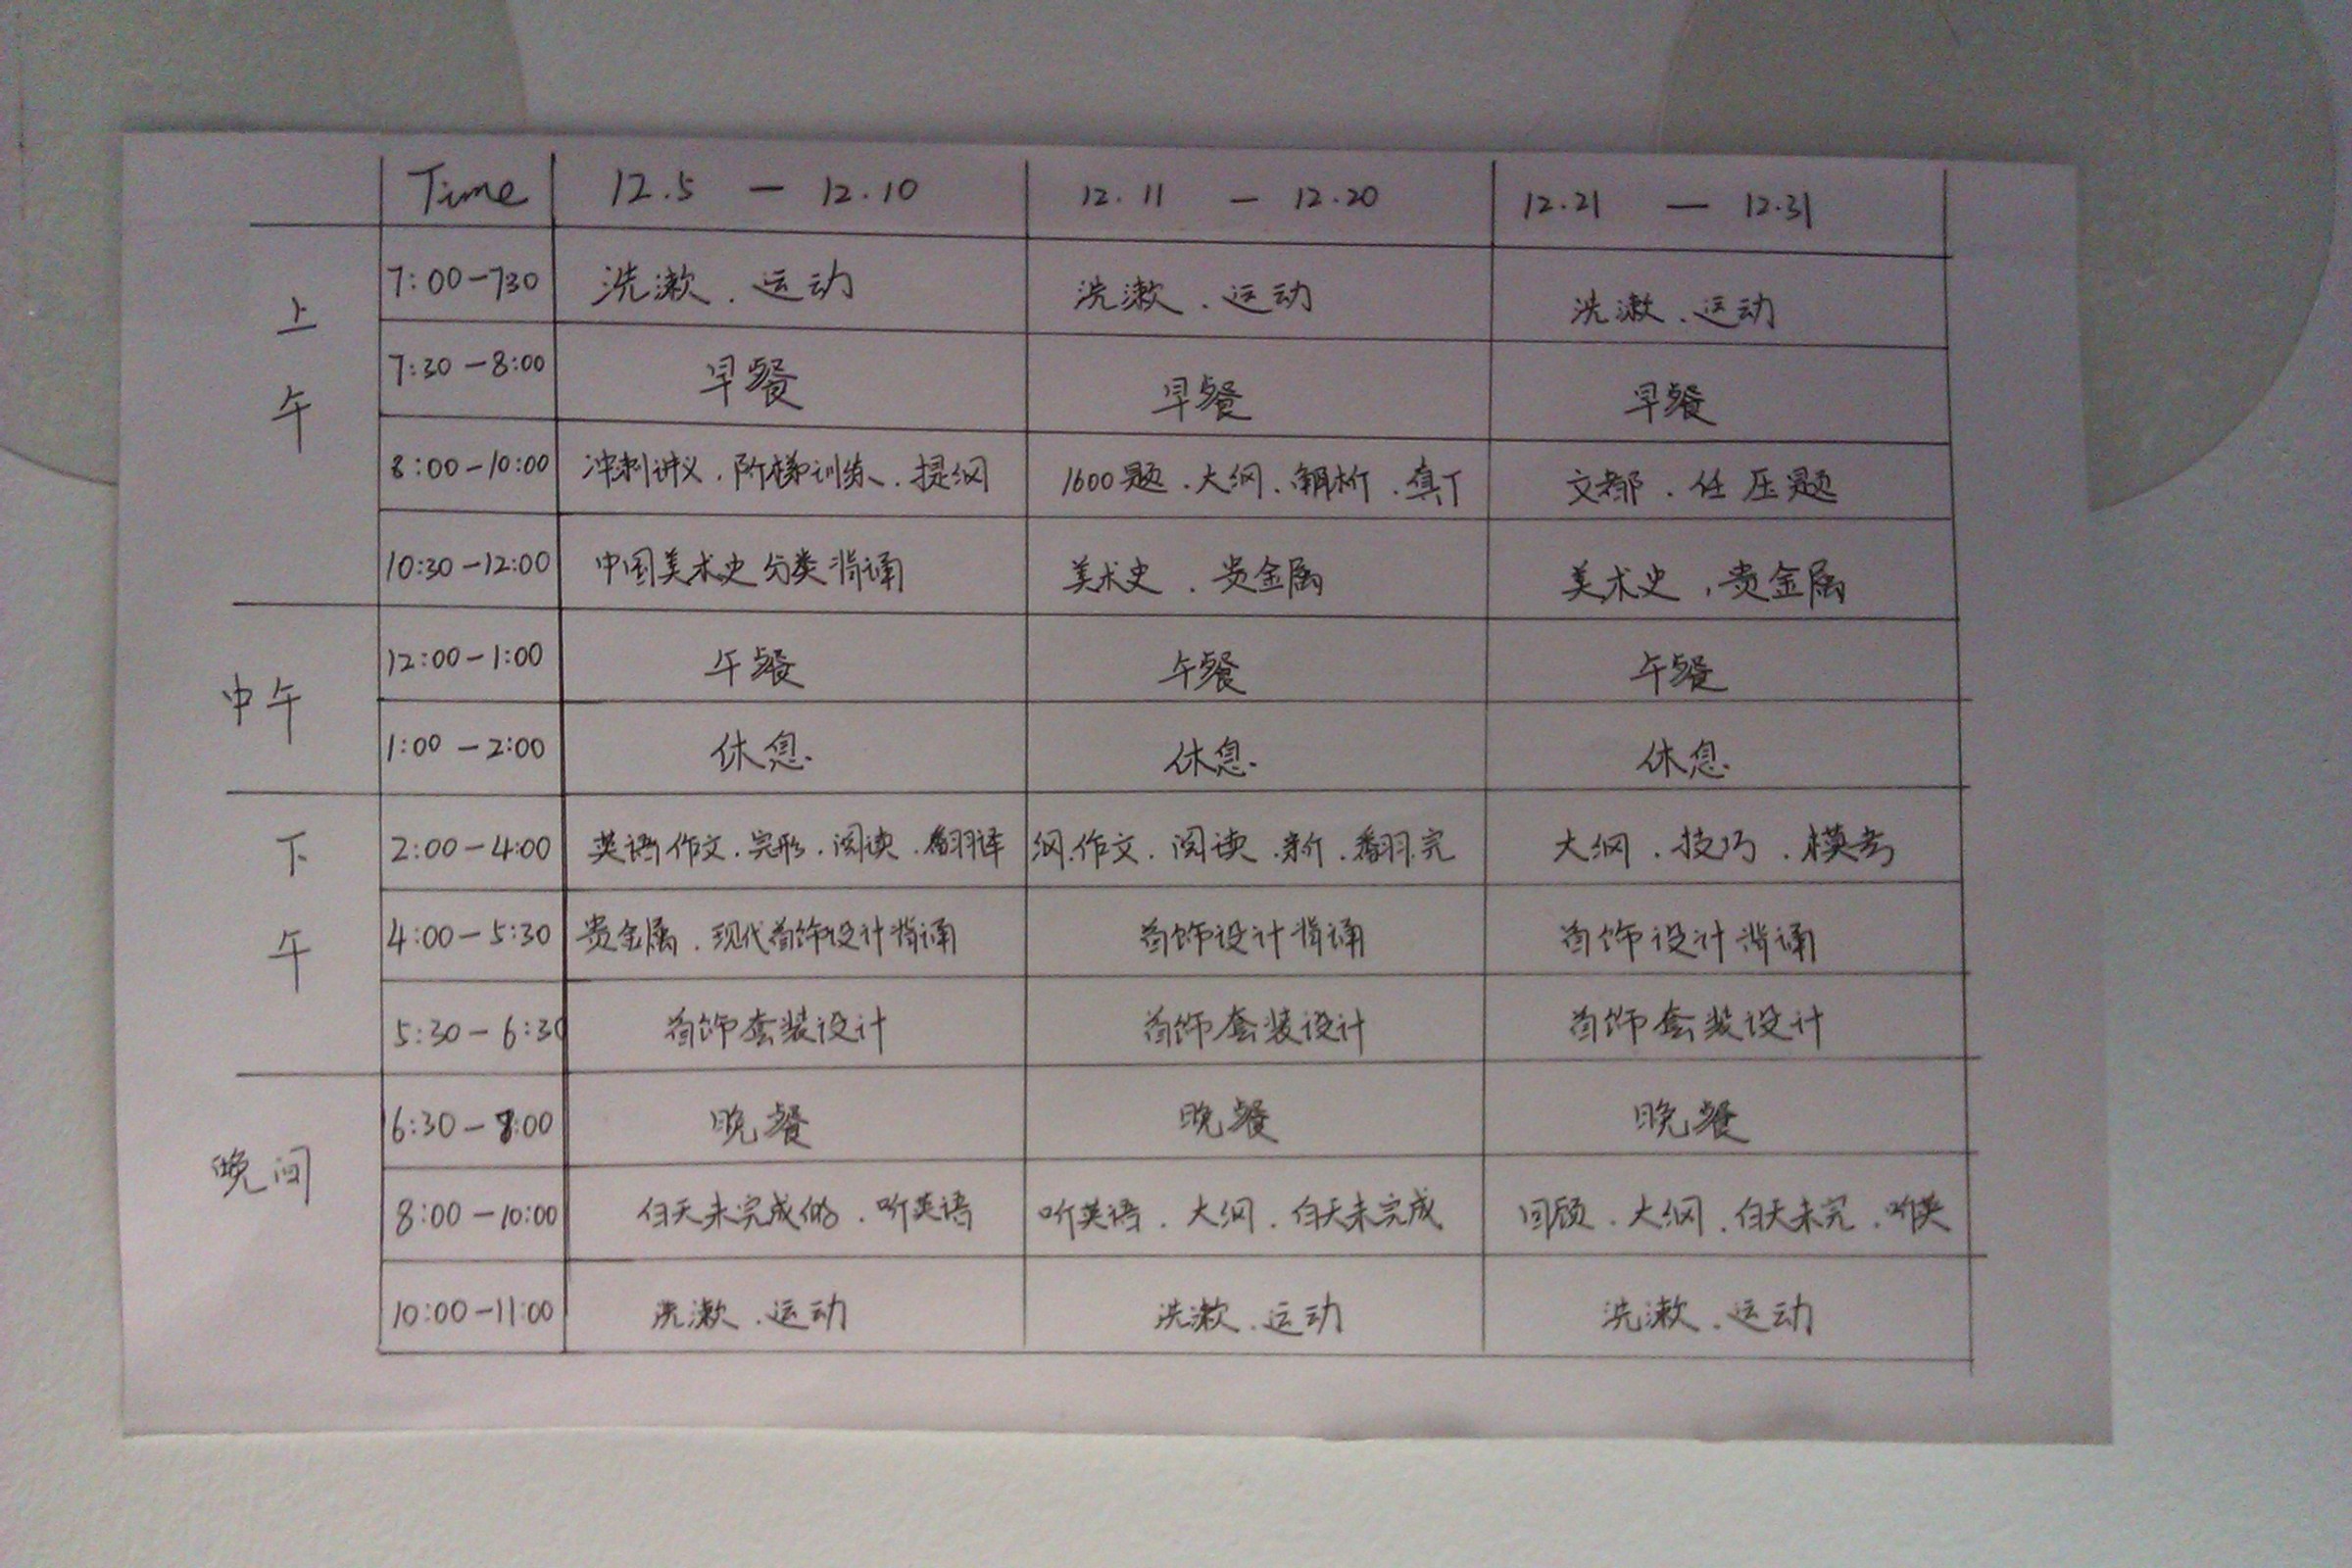 Time 12.5 — 12.10 12.11 — 12.20 12.21 — 12.31
上午
7:00—730 洗漱、运动 洗漱、运动 洗漱、运动
7:30—8:00 早餐 早餐 早餐
8:00—10:00 冲刺讲义、阶梯训练、提纲 1600题、大纲、解析、真T 文都、任压题
10:30—12:00 中国美术史分类背诵 美术史、贵金属 美术史,贵金属
中午
12:00—1:00 午餐 午餐 午餐
1:00—2:00 休息. 休息. 休息.
下午
2:00—4:00 英语作文、完形、阅读、翻译 纲.作文、阅读、新、翻.完 大纲、技巧、模考
4:00—5:30 贵金属、现代首饰设计背诵 首饰设计背诵 首饰设计背诵
5:30—6:30 首饰套装设计 首饰套装设计 首饰套装设计
晚间
6:30—8:00 晚餐 晚餐 晚餐
8:00—10:00 白天未完成的、听英语 听英语、大纲、白天未完成 回顾、大纲、白天未完、听英
10:00—11:00 洗漱、运动 洗漱、运动 洗漱、运动